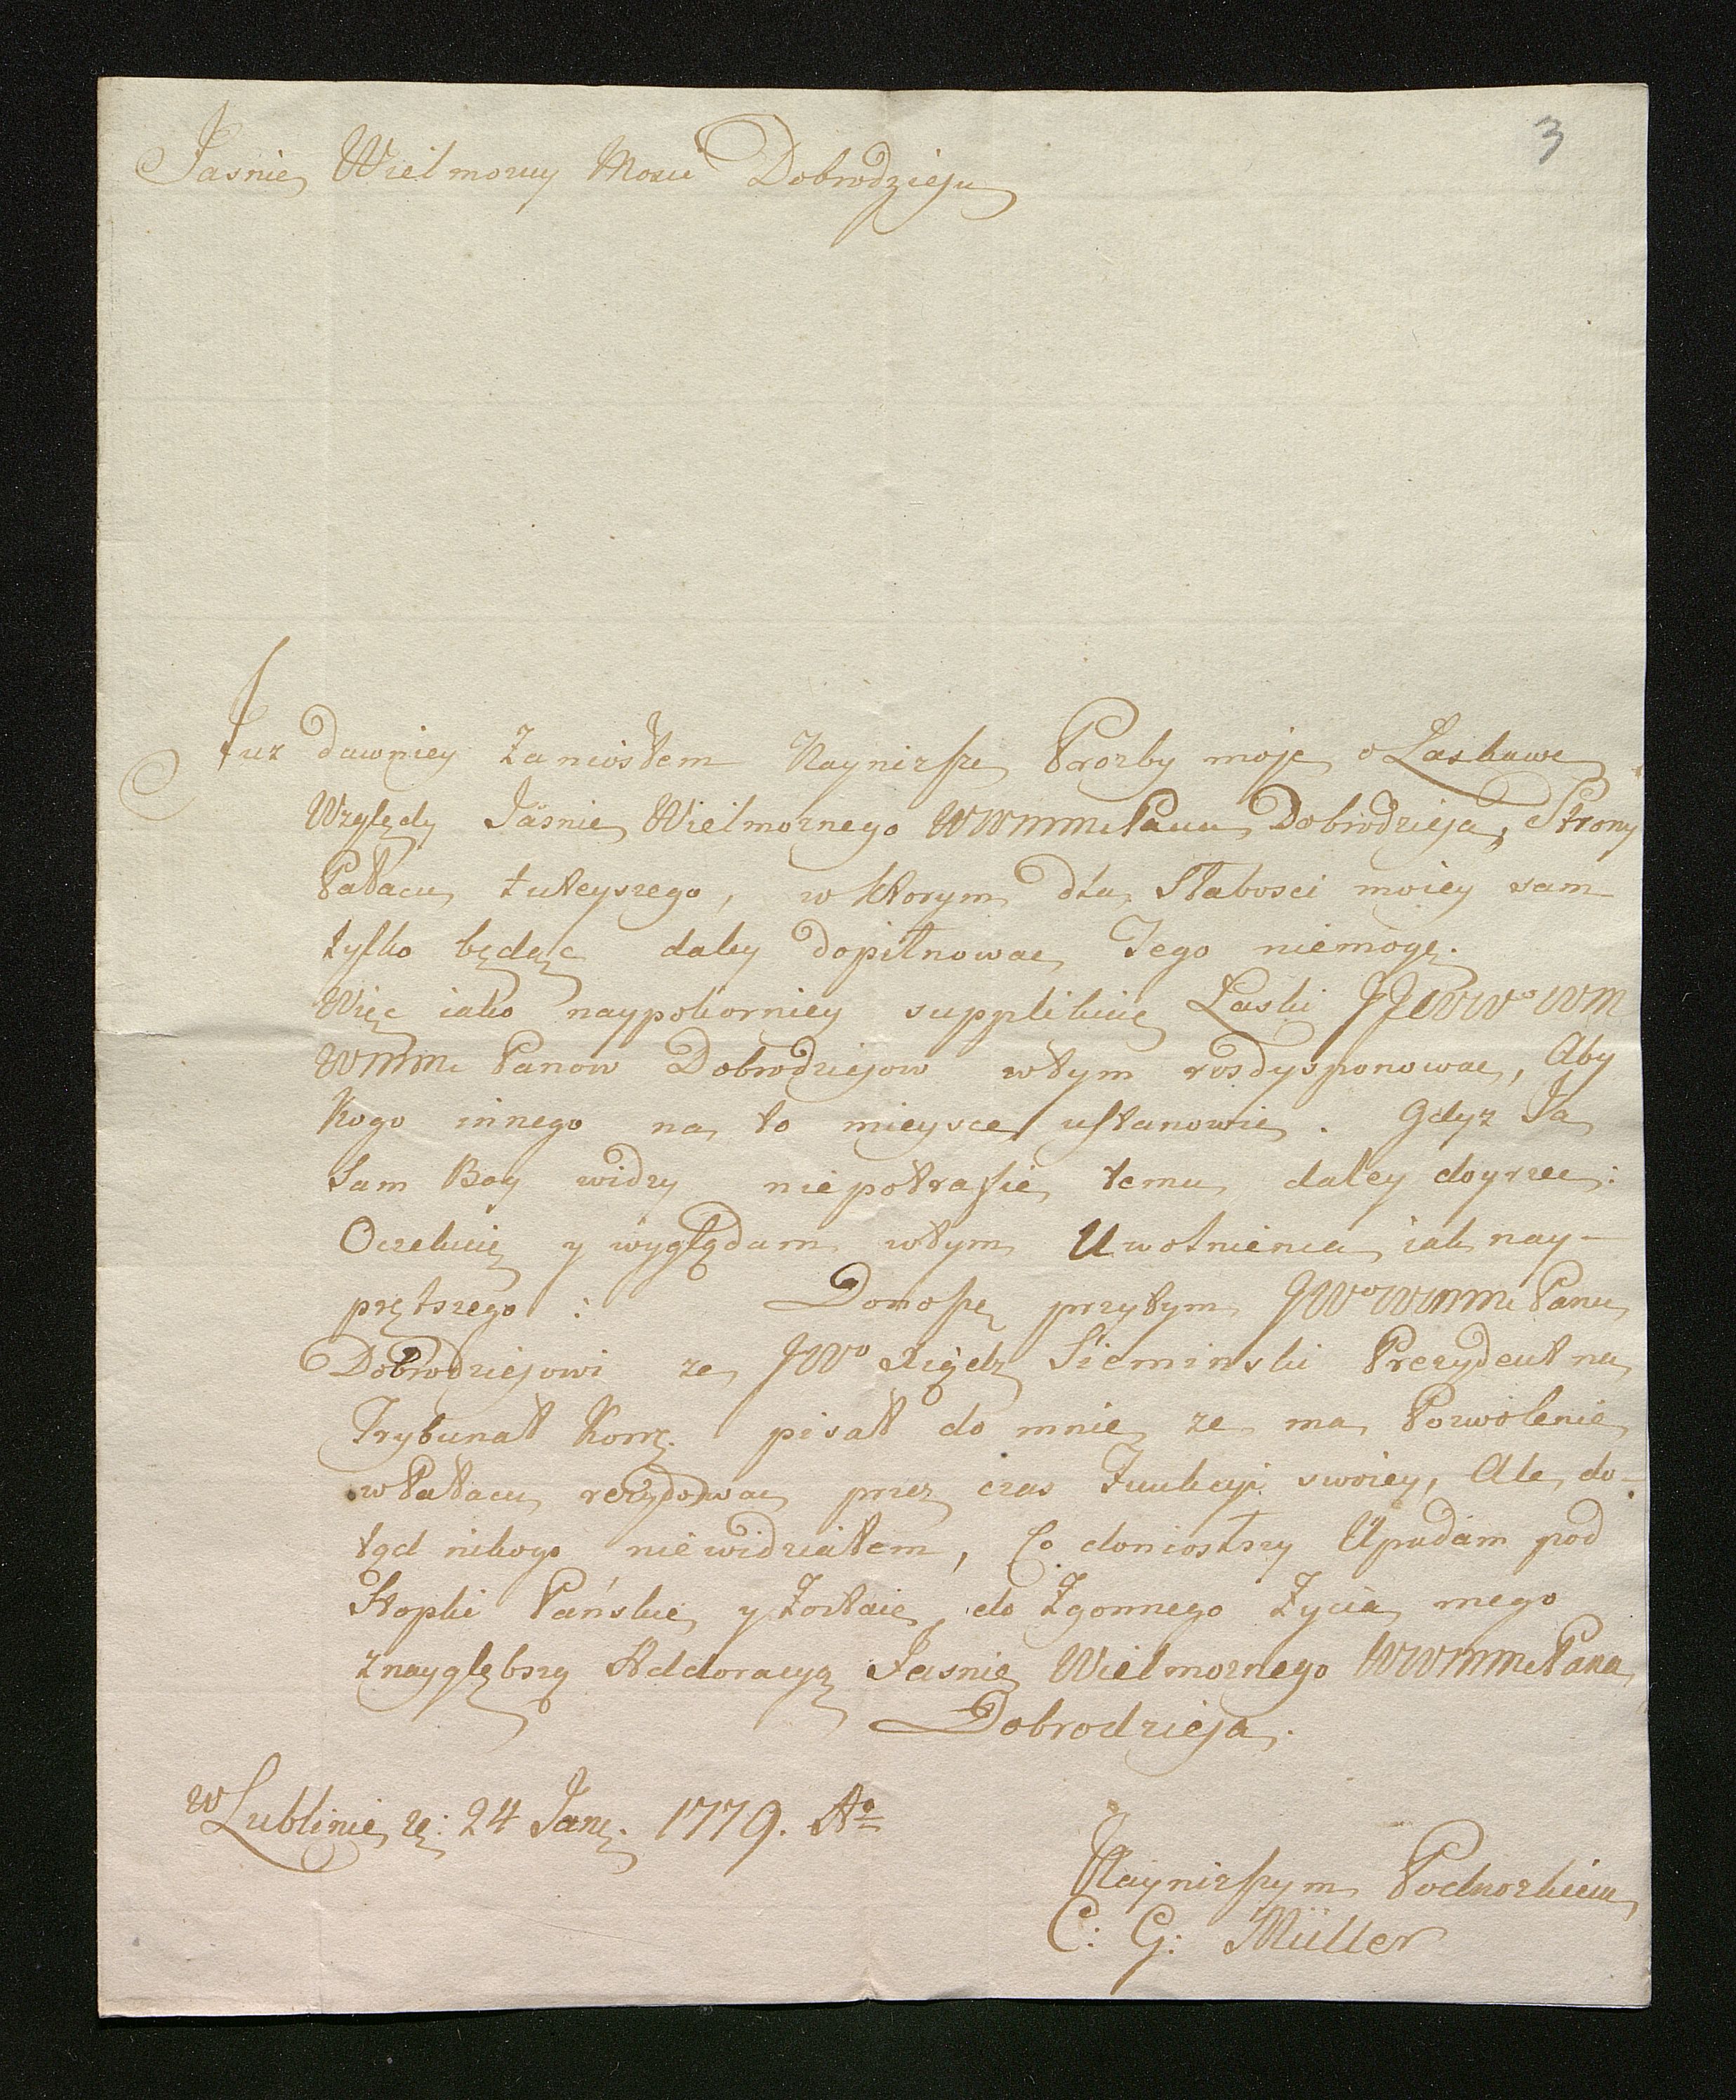 3
Jasnie Wielmozny Mosci Dobrodzieju
Juz dawniey zaniosłem Naynizsze Prozby moje o Łaskawe
Względy Jaśnie Wielmoznego WWmm Pana Dobrodzieja, Strony
Pałacu tuteyszego, w ktorym dla Słabosci moiey sam
tylko będąc daley dopilnowac Jego niemogę.
Więc iako naypokorniey supplikuię Łaski JJWWo WM
WMm Panow Dobrodziejow wtym rosdysponowac, Aby
Kogo innego na to mieysce ustanowic. Gdyz Ja
Sam Bog widzy niepotrafie temu daley doyrzec:
Oczekuię y wyglądam wtym Uwolnienia iak nay-
prętszego: Donoszę przytym JWo WMm Panu
Dobrodziejowi ze JWo Xiądz Sieminski Prezydent na
Trybunał Korr: pisał do mnie ze ma Pozwolenie
w Pałacu rezydowac przez czas Funkcyi swoiey, Ale do-
tąd nikogo niewidziałem, Co doniosłszy Upadam pod
Stopki Pańskie y Zostaię do Zgonnego Zycia mego
znaygłębszą Addoracyą Jasnie Wielmoznego WWmm Pana
Dobrodzieja.
w Lublinie, 24 Jan: 1779. Ao
Naynizszym Podnozkiem
C: G: Müller